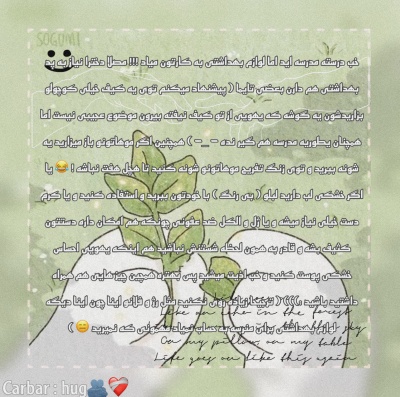 SOGOMI
خب درسته مدرسه اید اما لوازم بهداشتی به کارتون میاد !!! مصلا دخترا نیاز به پد
بهداشتی هم دارن بعضی تایما ( پیشنهاد میکنم توی یه کیف خیلی کوچولو
بزاریدشون یه گوشه که یهویی از تو کیف نیفته بیرون موضوع عجیبی نیست اما
هیچنان یطوریه مدرسه هم گیر نده - _ - ) همچنین اگر موهاتونو باز میزارید یه
شونه ببرید و توی زنگ تفریح موهاتونو شونه کنید تا هپل هفت نباشه ! 😂 یا
اگر خشکی لب دارید لیلو ( بی رنگ ) با خودتون ببرید و استفاده کنید و یا کرم
دست خیلی نیاز میشه و یا ژل و الکل ضد عفونی چونکه هم امکان داره دستتون
کثیف بشه و قادر به همون لحظه شستنش نباشید هم اینکه یهویی احساس
خشکی پوست کنید و خب اذیت میشید پس بهتره همچین چیزهایی هم همراه
داشتید باشید :)))) ( ترجیحا زیاده روی نکنید مثل رژ و فلانو اینا چون اینا دیگه
لوازم بهداشتی برای مدرسه به حساب نمیاد همونی که نبرید 😊 )
like an echo in the forest
On my pillow, on my table
Life goes on like this again
Carbar : hug🫂❤️‍🩹